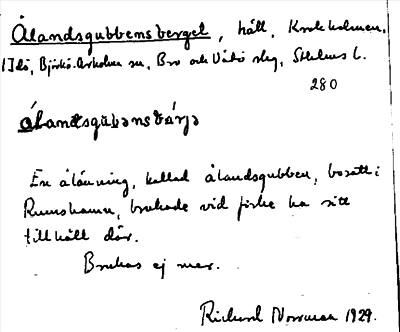 Ålandsgubbensberget, häll, Krokholmen,
Idö, Björkö-Arholma sn, Bro och Vätö skg, Sthlms l.
280
En ålänning, kallad ålandsgubben, bosatt i
Rumshamn, brukade vid fiske ha sitt
tillhåll där.
Brukas ej mer.
Richard Norrman 1929.